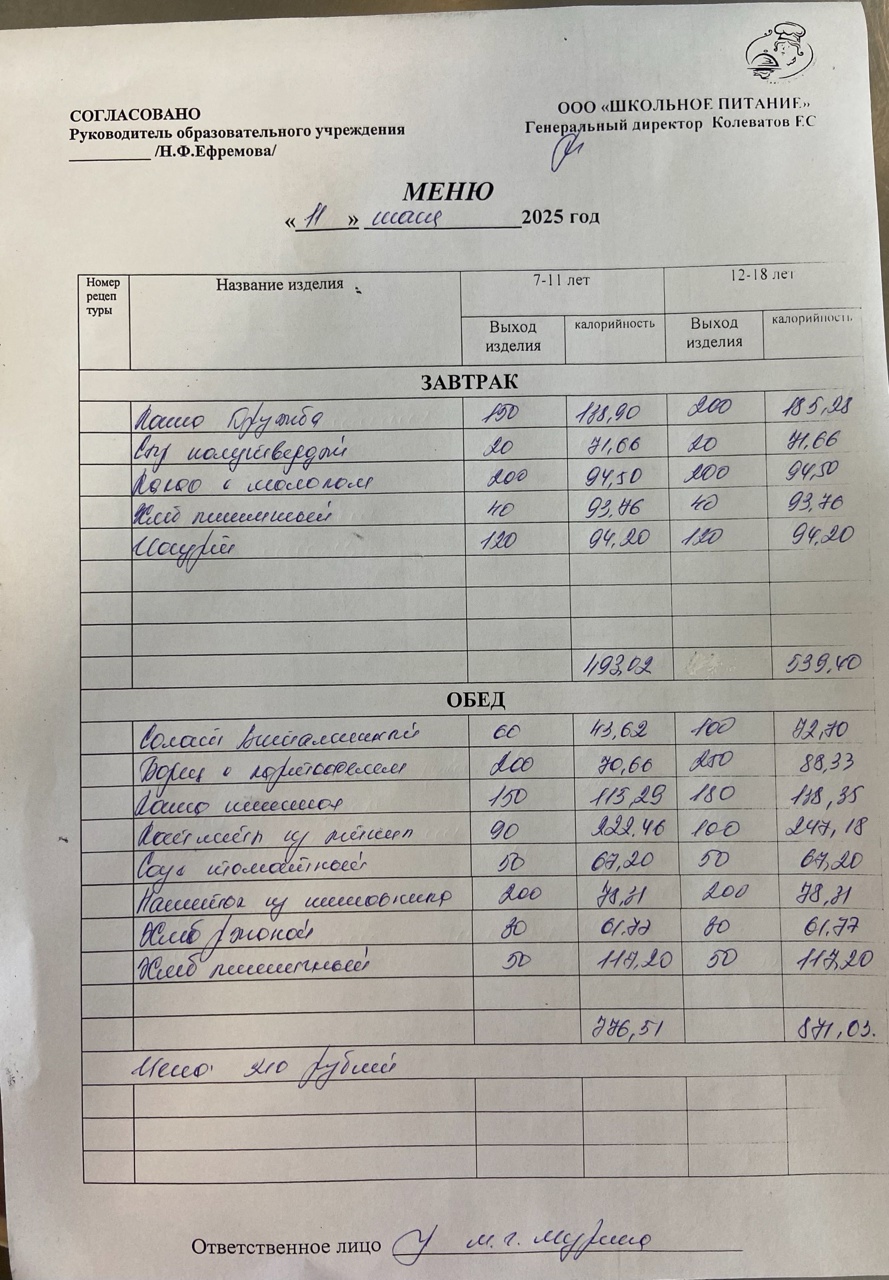 СОГЛАСОВАНО
Руководитель образовательного учреждения
/Н.Ф.Ефремова/
ООО «ШКОЛЬНОЕ ПИТАНИЕ»
Генеральный директор Колеватов Е.С
МЕНЮ
« 11 » 2025 год
Номер рецеп туры Название изделия 7-11 лет 12-18 лет
Выход изделия калорийность Выход изделия калорийность
ЗАВТРАК
Каша Дружба 150 138,90 200 185,28
Сыр полутвердый 20 71,66 20 71,66
Какао с молоком 200 94,50 200 94,50
Хлеб пшеничный 40 93,76 40 93,76
120 94,20 120 94,20
493,02 539,40
ОБЕД
Салат витаминный 60 43,62 100 72,70
Борщ с картофелем 200 70,66 250 88,33
Каша 150 115,29 180 138,35
90 222.46 100 247,18
Соус томатный 50 67,20 50 67,20
Напиток из шиповника 200 78,31 200 78,31
Хлеб ржаной 30 61.77 30 61.77
Хлеб пшеничный 50 117,20 50 117,20
776,51 871,03.
210 рублей
Ответственное лицо